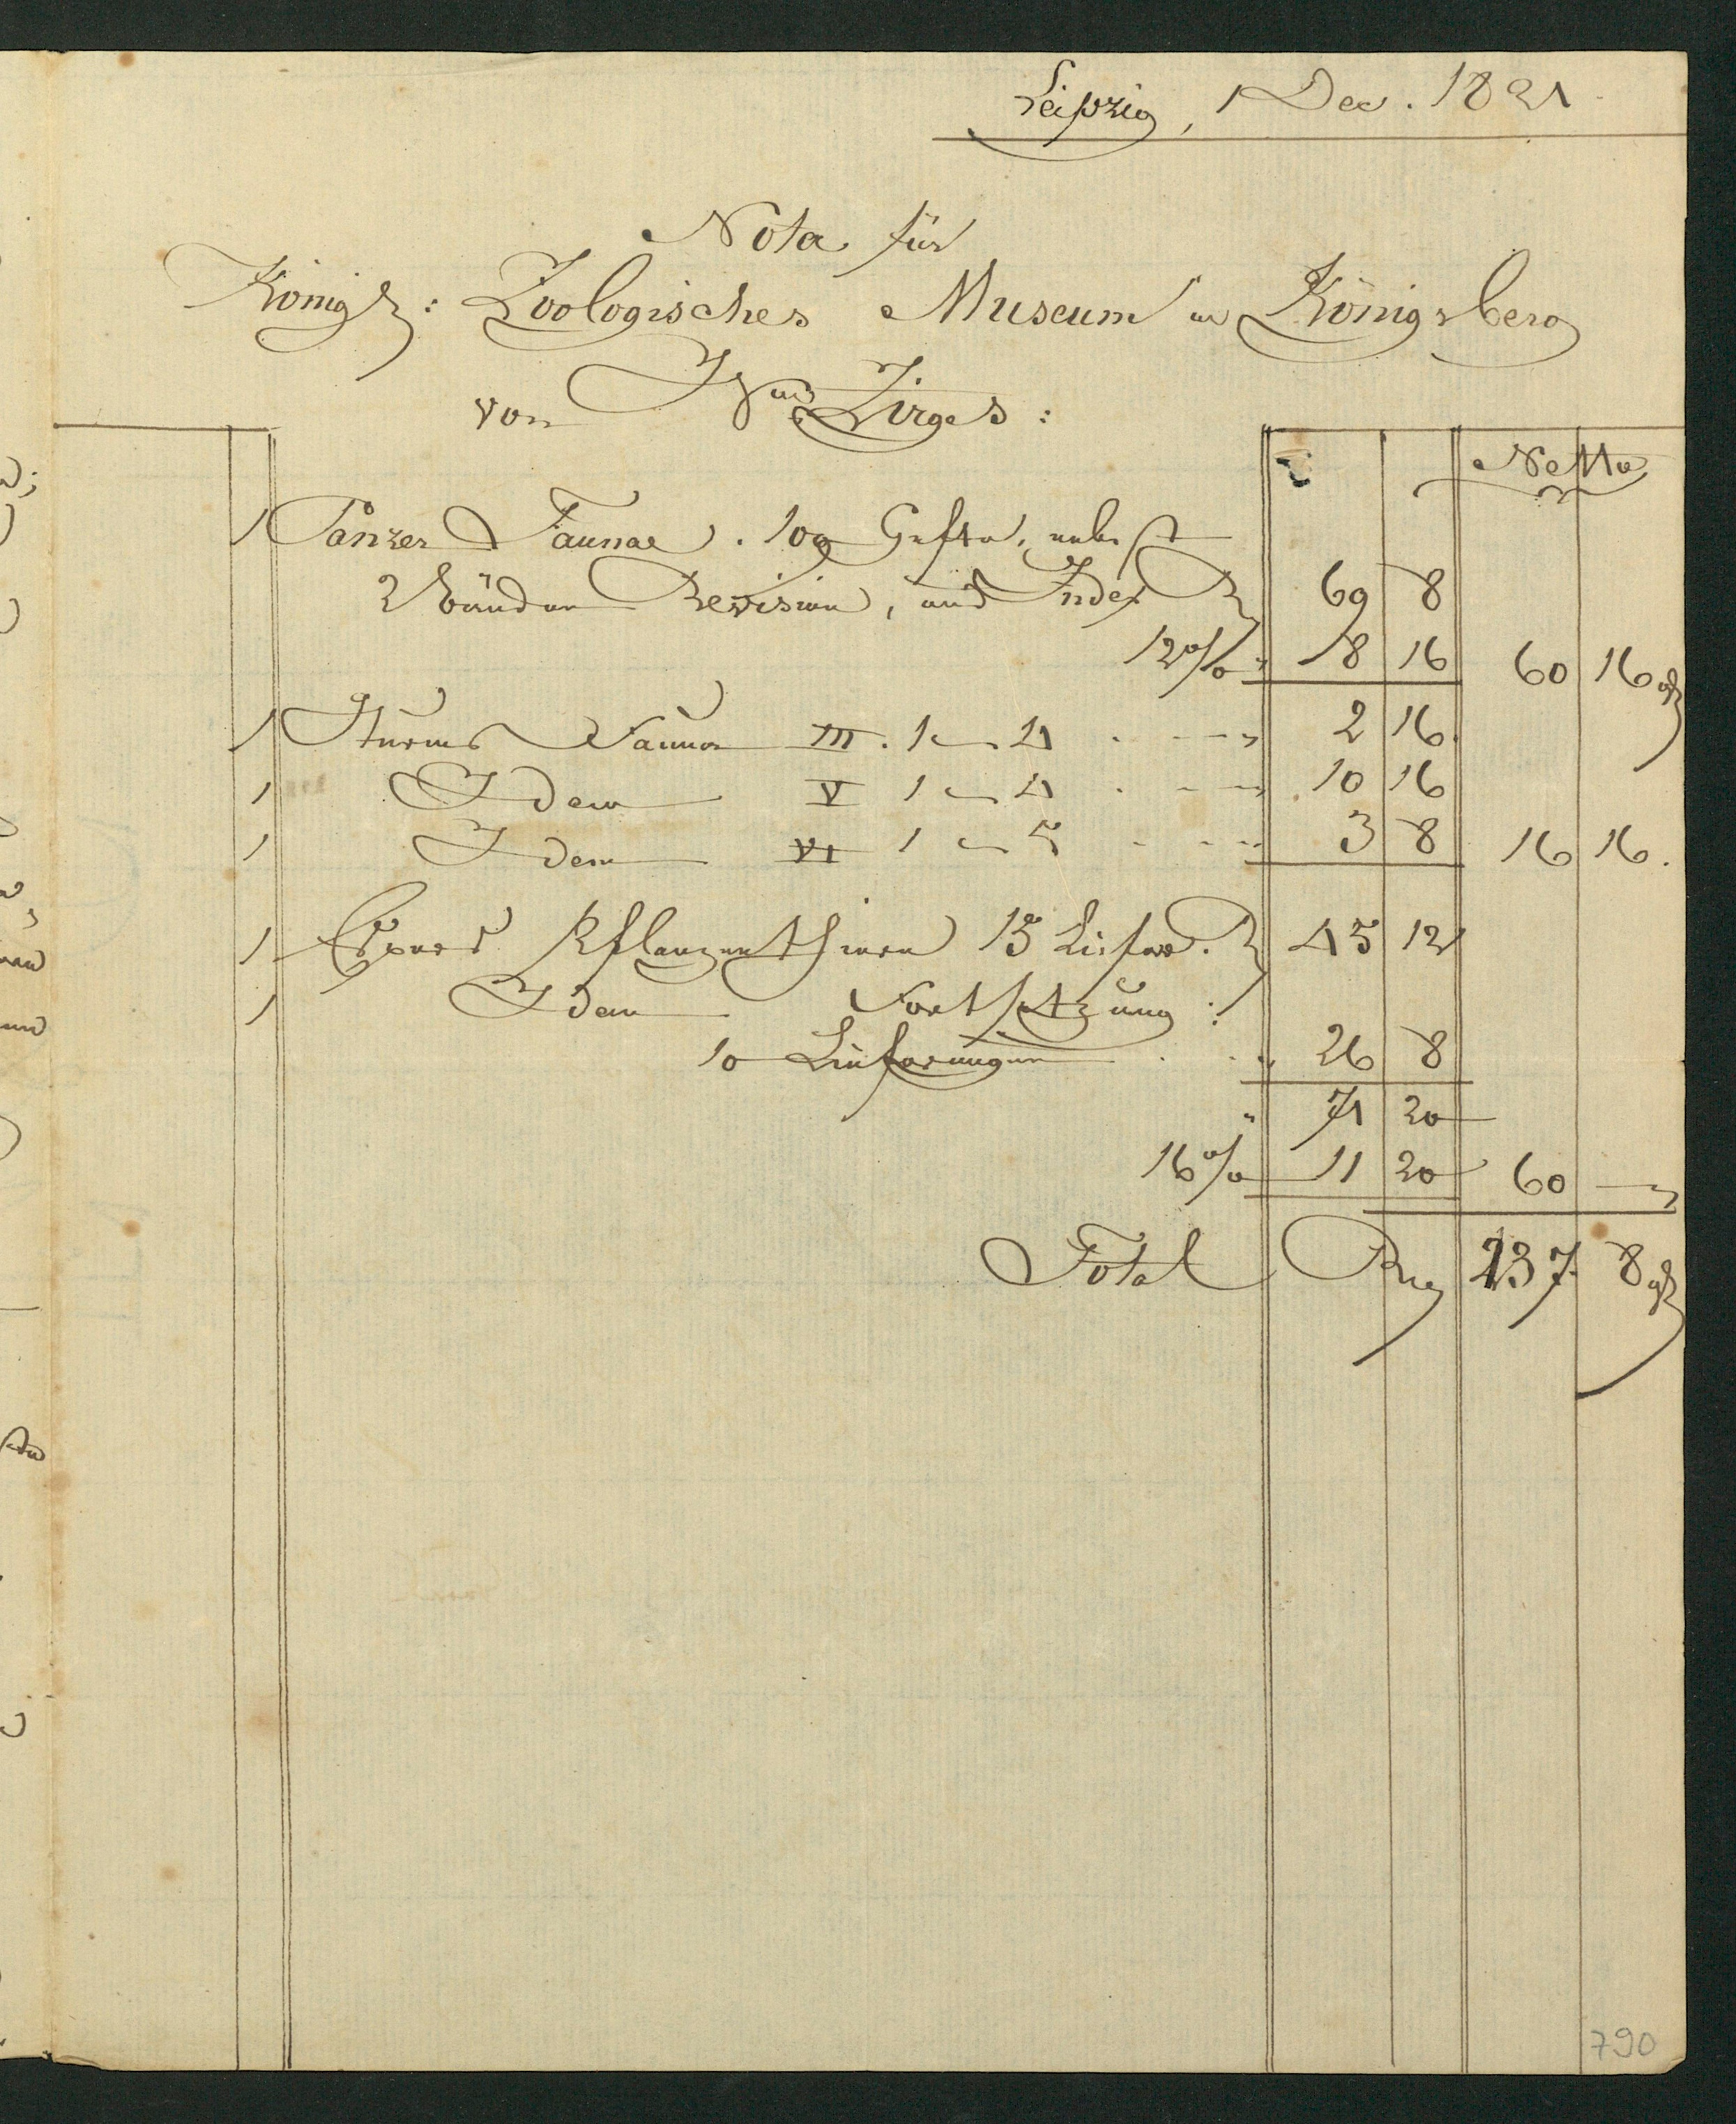 Leipzig, 1 Dec. 1821
Nota für
Königl: Zoologisches Museum in Königsberg
von Zirges:
Netto
1 Panzer Faunae. 109 Hefte, nebst
2 Bänden Revision, und Index 69 8
12% 8 16 60 16 gl
1 Sturms Fauna III. 1 – 4 2 16
1 Idem V 1 – 4 10 16
1 Idem VI 1 – 5 3 8 16 16.
1 Espers Pflanzenthiere 15 Liefer. 45 12
1 Idem Fortsetzung:
10 Lieferungen 26 8
71 20
16% 11 20 60 —
Total 137 8 gl
790